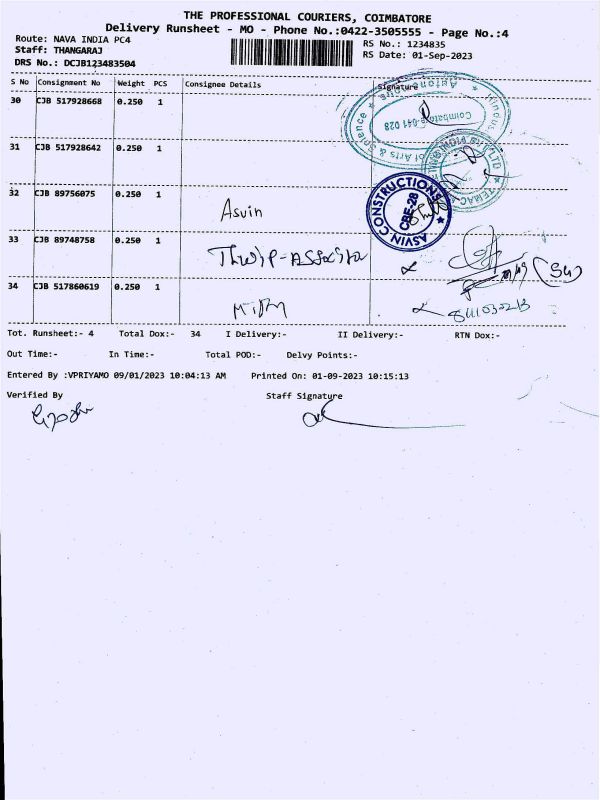 THE PROFESSIONAL COURIERS, COIMBATORE
Delivery Runsheet - MO - Phone No.:0422-3505555 - Page No.:4
Route: NAVA INDIA PC4
RS No.: 1234835
Staff: THANGARAJ
RS Date: 01-Sep-2023
DRS No.: DCJB123483504
S No Consignment No Weight PCS Consignee Details Signature
30 CJB 517928668 0.250 1
31 CJB 517928642 0.250 1
32 CJB 89756075 0.250 1 Asvin
ASVIN CONSTRUCTIONS
CBE-28
33 CJB 89748758 0.250 1
34 CJB 517860619 0.250 1
Tot. Runsheet:- 4 Total Dox:- 34 I Delivery:- II Delivery:- RTN Dox:-
Out Time:- In Time:- Total POD:- Delvy Points:-
Entered By :VPRIYAMO 09/01/2023 10:04:13 AM Printed On: 01-09-2023 10:15:13
Verified By Staff Signature